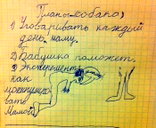 Планы (собака)
1) Уговаривать каждый
день маму.
2) Бабушка поможет.
3) Эксперимент
как
вать
Мамоч